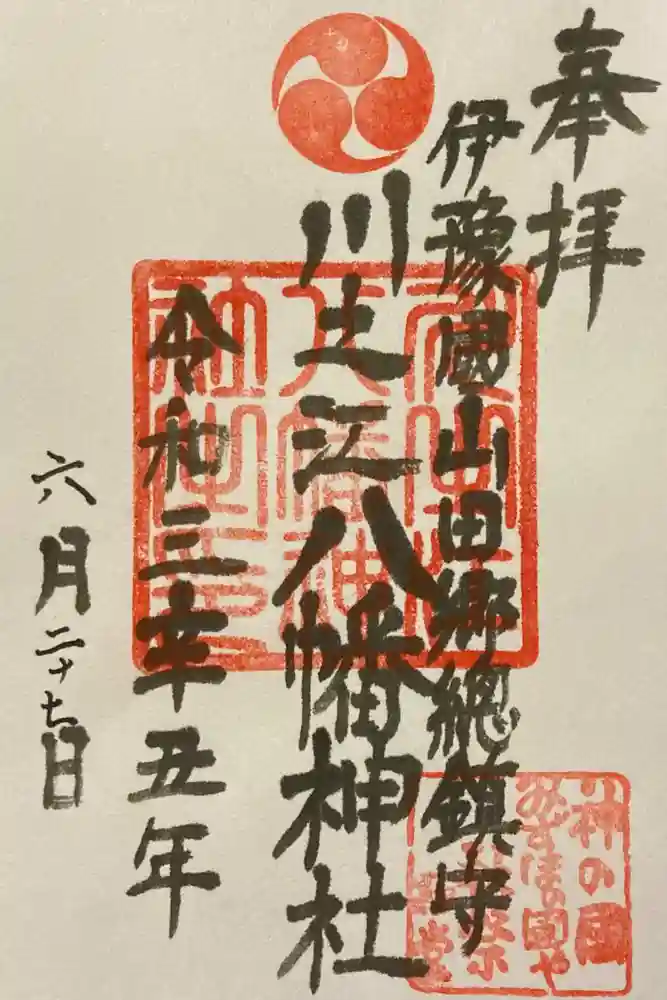 奉拝
伊豫國山田郷總鎮守
川之江八幡神社
令和三辛丑年
六月二十七日
神の國
みずほの國や